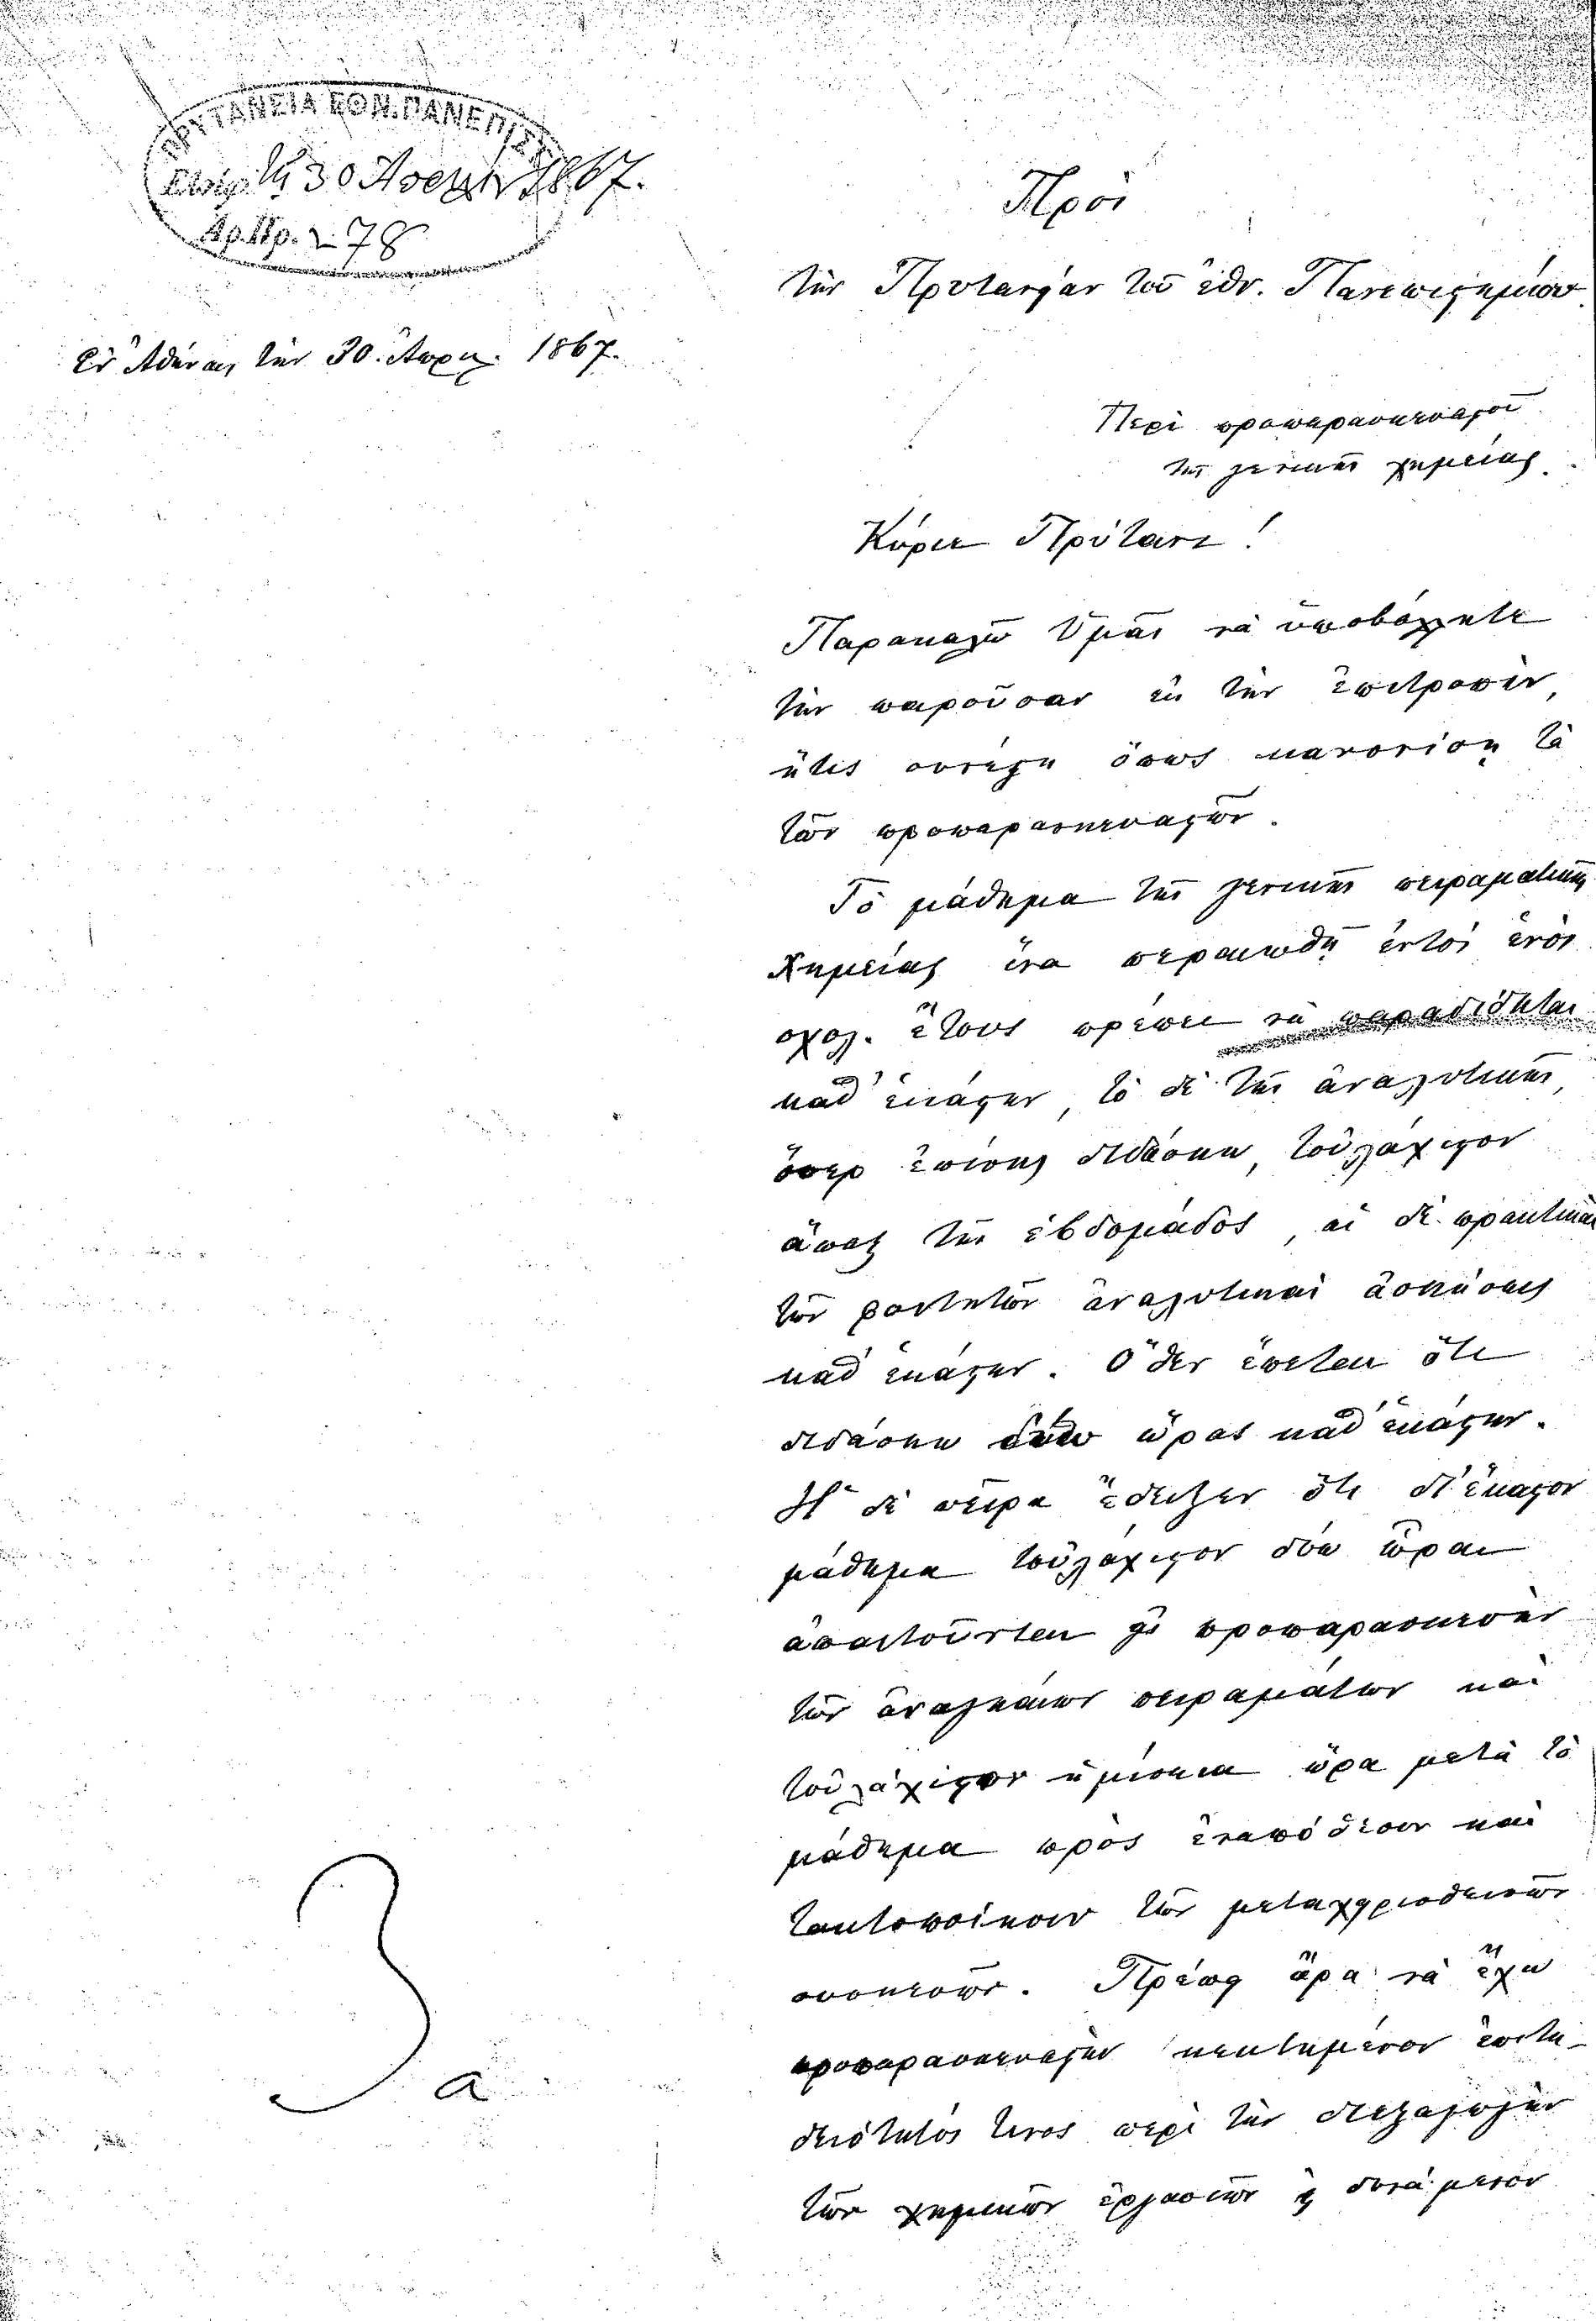 ΠΡΥΤΑΝΕΙΑ ΕΘΝ. ΠΑΝΕΠΙΣΤ
τῇ 30 1867.
Ἀρ. Πρ. 278
Ἐν Ἀθήναις τὴν 30. Ἀπριλ. 1867.
Πρὸς
τὴν Πρυτανείαν τοῦ ἐθν. Πανεπιστημίου.
Περὶ προπαρασκευαστοῦ
τῆς γενικῆς χημείας.
Κύριε Πρύτανι!
Παρακαλῶ Ὑμᾶς νὰ ὑποβάλητε
τὴν παροῦσαν εἰς τὴν ἐπιτροπὴν,
ἥτις συνέστη ὅπως κανονίσῃ τὰ
τῶν προπαρασκευαστῶν.
Τὸ μάθημα τῆς γενικῆς πειραματικῆς
χημείας ἵνα περαιωθῇ ἐντὸς ἑνὸς
σχολ. ἔτους πρέπει νὰ παραδίδηται
καθ' ἑκάστην, τὸ δὲ τῆς ἀναλυτικῆς,
ὅπερ ἐπίσης διδάσκω, τοὐλάχιστον
ἅπαξ τῆς ἑβδομάδος, αἱ δὲ πρακτικαὶ
τῶν φοιτητῶν ἀναλυτικαὶ ἀσκήσεις
καθ' ἑκάστην. Ὅθεν ἕπεται ὅτι
διδάσκω δύω ὥρας καθ' ἑκάστην.
Ἡ δὲ πεῖρα ἔδειξεν ὅτι δι' ἕκαστον
μάθημα τοὐλάχιστον δύω ὧραι
ἀπαιτοῦνται διὰ προπαρασκευὴν
τῶν ἀναγκαίων πειραμάτων καὶ
τοὐλάχιστον ἡμίσεια ὥρα μετὰ τὸ
μάθημα πρὸς ἐναπόθεσιν καὶ
τακτοποίησιν τῶν μεταχειρισθεισῶν
συσκευῶν. Πρέπει ἄρα νὰ ἔχω
προπαρασκευαστὴν κεκτημένον ἐπιτη-
δειότητός τινος περὶ τὴν διεξαγωγὴν
τῶν χημικῶν ἐργασιῶν δυνάμενον
3
α